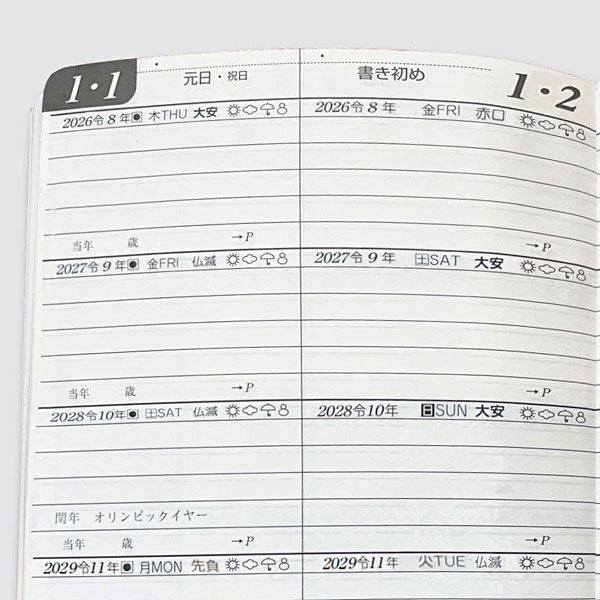 1・1 元日・祝日
2026令8年 木THU 大安
当年 歳 →P
2027令9年 金FRI 仏滅
当年 歳 →P
2028令10年 土SAT 仏滅
閏年 オリンピックイヤー
当年 歳 →P
2029令11年 月MON 先負
書き初め 1・2
2026令8年 金FRI 赤口
→P
2027令9年 土SAT 大安
→P
2028令10年 日SUN 大安
→P
2029令11年 火TUE 仏滅